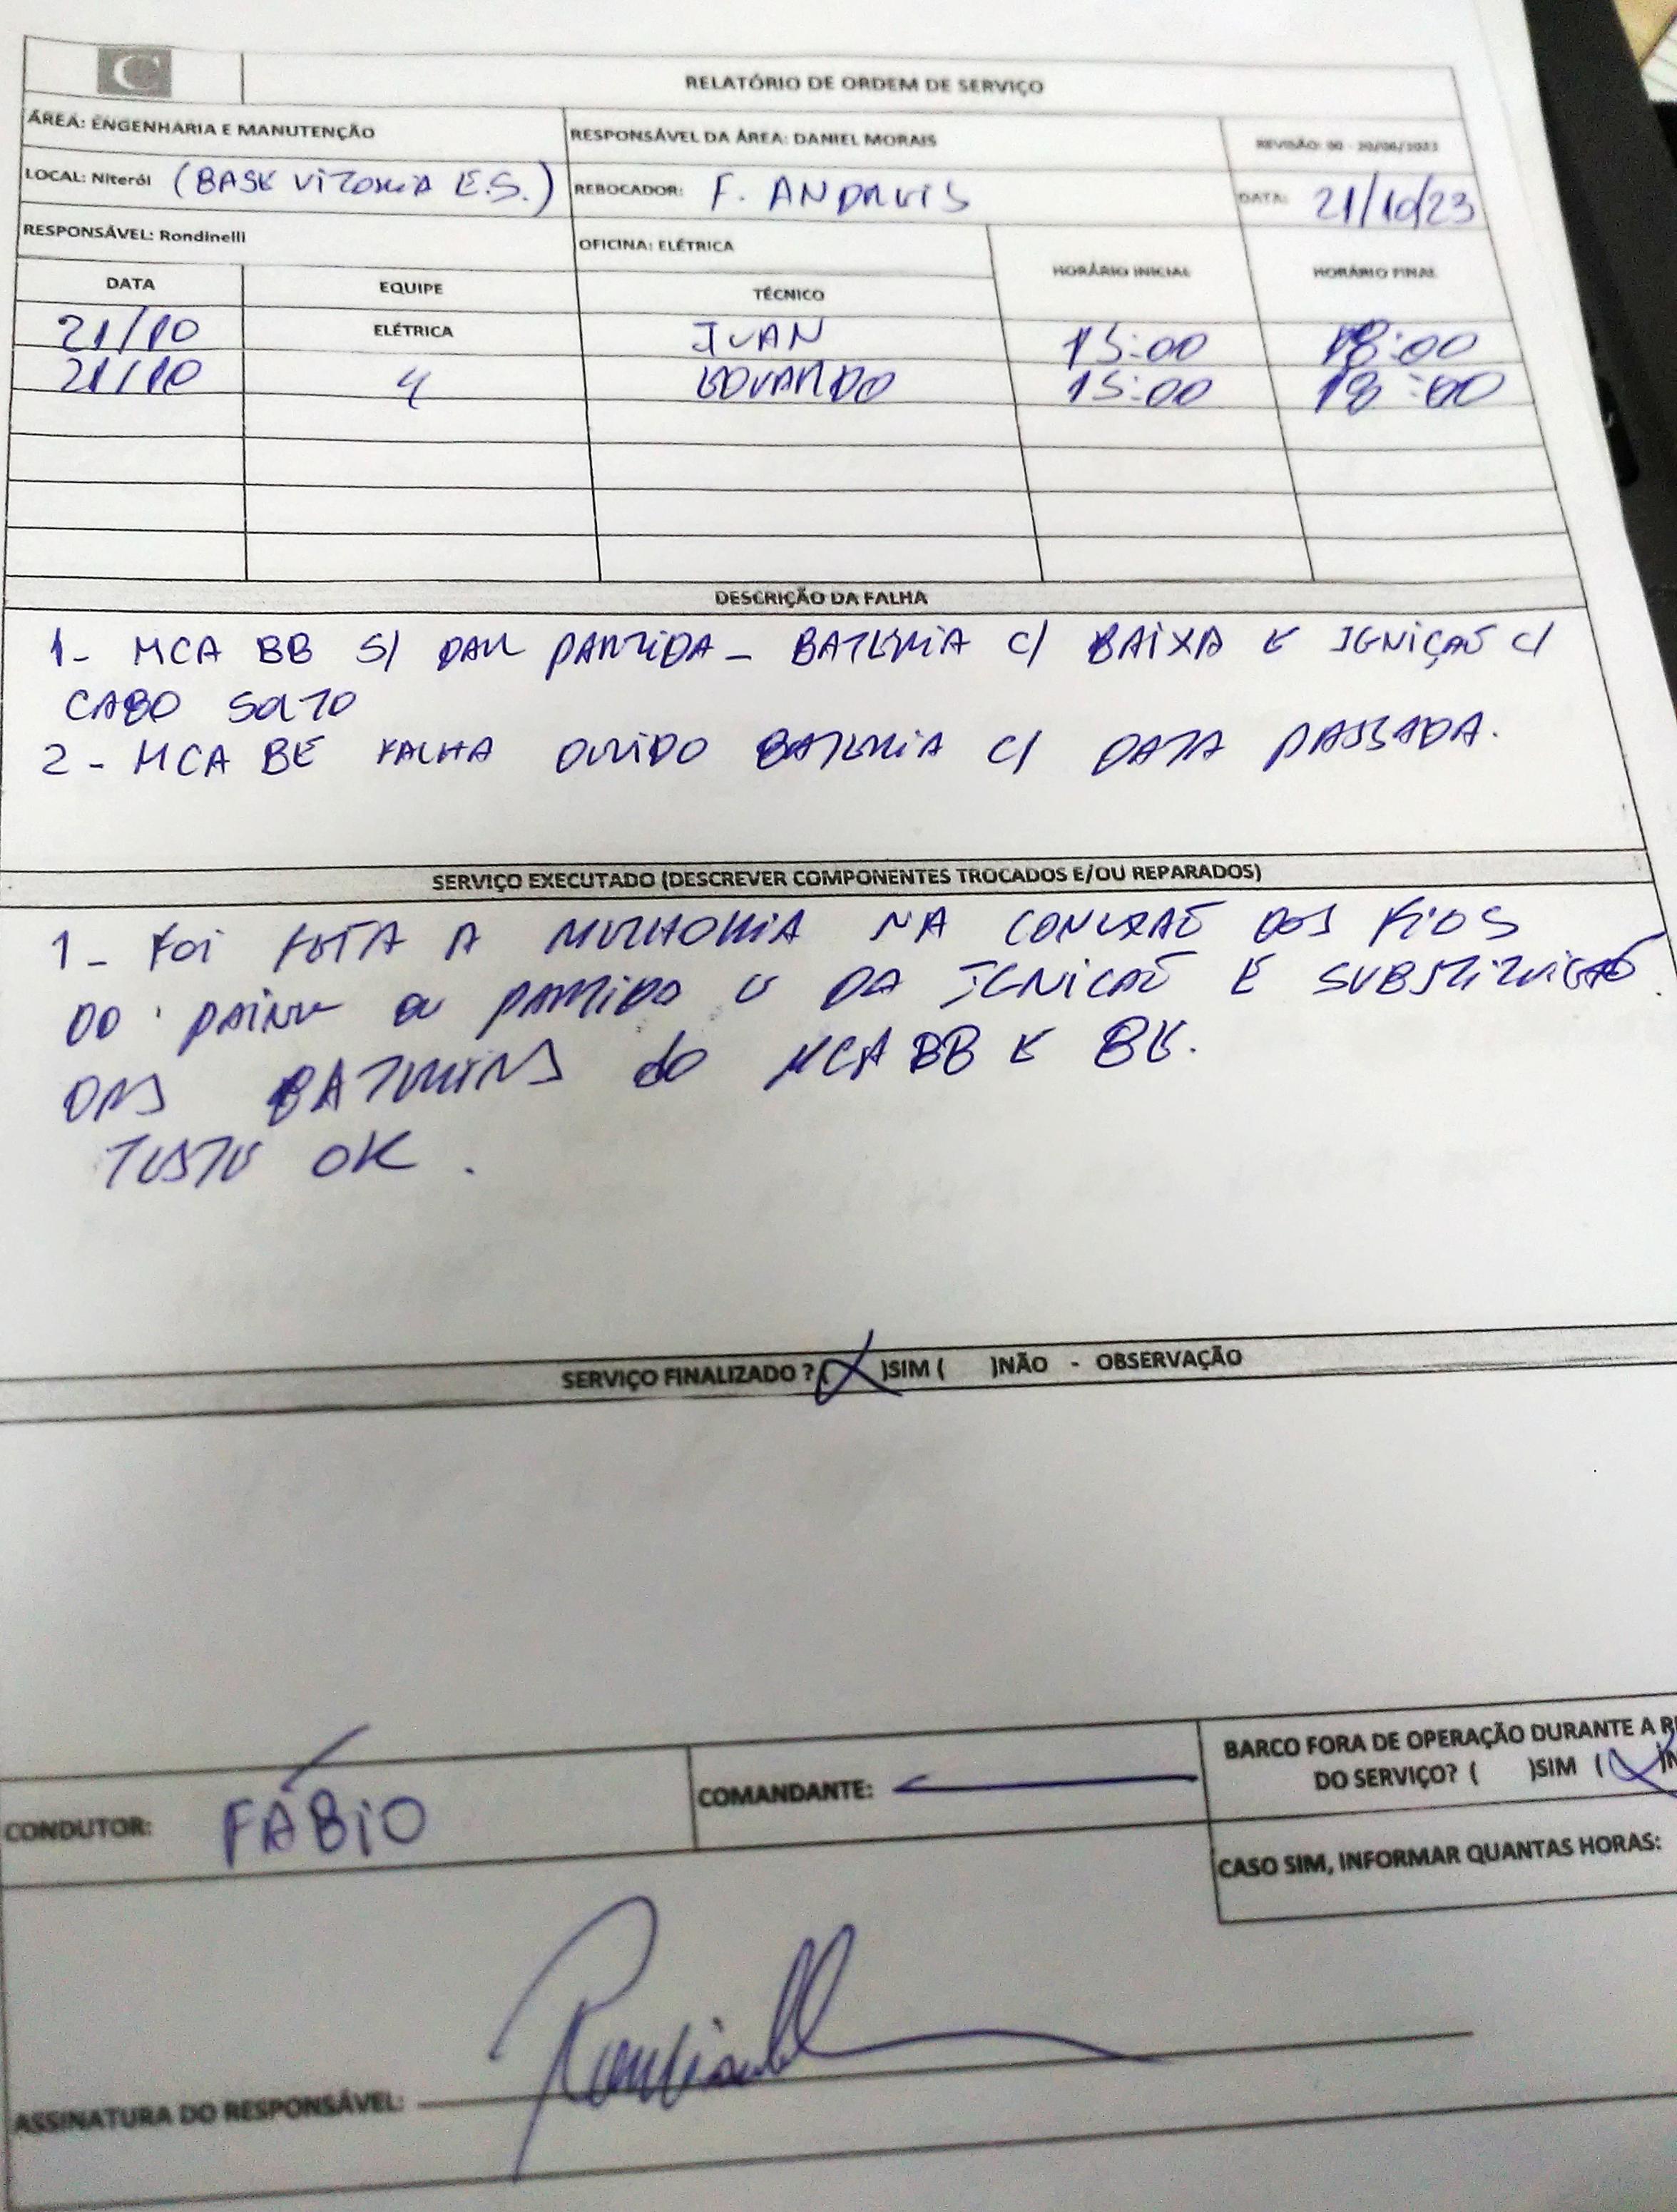 C
RELATÓRIO DE ORDEM DE SERVIÇO
ÁREA: ENGENHARIA E MANUTENÇÃO
RESPONSÁVEL DA ÁREA: DANIEL MORAIS
REVISÃO: 00 - 20/06/2023
LOCAL: Niterói (BASE VITORIA E.S.)
REBOCADOR: F. ANDREIS
DATA: 21/10/23
RESPONSÁVEL: Rondinelli
OFICINA: ELÉTRICA
HORÁRIO INICIAL
HORÁRIO FINAL
DATA EQUIPE TÉCNICO
21/10 ELÉTRICA IVAN 15:00 18:00
21/10 4 EDUARDO 15:00 18:00
DESCRIÇÃO DA FALHA
1- MCA BB S/ DAR PARTIDA - BATERIA C/ BAIXA E IGNIÇÃO C/
CABO SOLTO
2- MCA BE FALHA DEVIDO BATERIA C/ DATA PASSADA.
SERVIÇO EXECUTADO (DESCREVER COMPONENTES TROCADOS E/OU REPARADOS)
1- FOI FEITA A MELHORIA NA CONEXAÕ DOS FIOS
DO PAINEL DE PARTIDA E DA IGNICAÕ E SUBSTITUIÇAÕ
DAS BATERIAS do MCA BB E BE.
TESTE OK.
SERVIÇO FINALIZADO ? (X)SIM ( )NÃO - OBSERVAÇÃO
CONDUTOR: FÁBIO
COMANDANTE:
BARCO FORA DE OPERAÇÃO DURANTE A
DO SERVIÇO? ( )SIM (X)
CASO SIM, INFORMAR QUANTAS HORAS:
ASSINATURA DO RESPONSÁVEL: